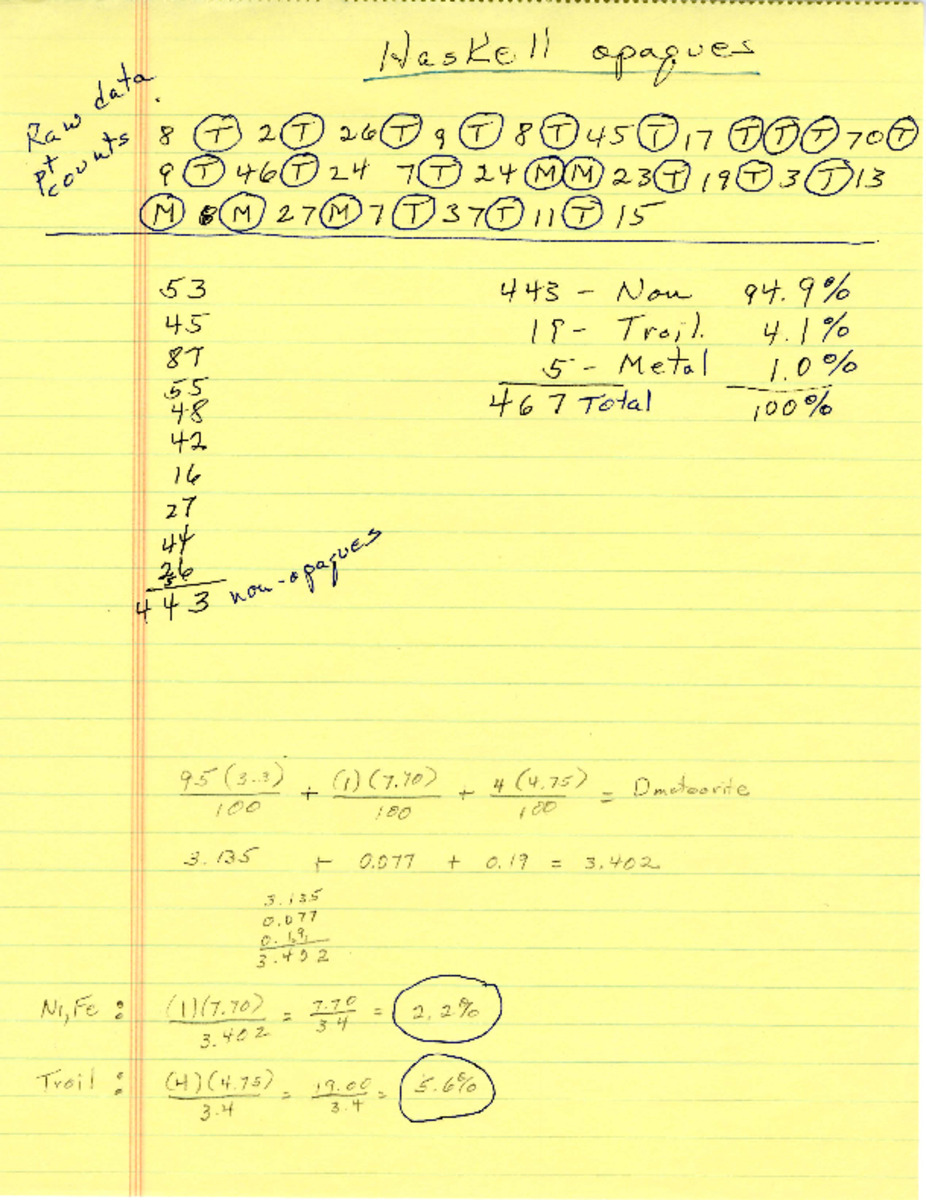 Haskell opaques
Raw data
pt
counts
8 T 2 T 26 T 9 T 8 T 45 T 17 T T T 70 T
9 T 46 T 24 7 T 24 M M 23 T 19 T 3 T 13
M 8 M 27 M 7 T 37 T 11 T 15
53
45
87
55
48
42
16
27
44
26
5
443 non-opaques
443 - Non 94.9%
19 - Troil. 4.1%
5 - Metal 1.0%
467 Total 100%
95(3.3)/100 + (1)(7.70)/100 + 4(4.75)/100 = Dmeteorite
3.135 + 0.077 + 0.19 = 3.402
3.135
0.077
0.19
3.402
Ni,Fe : (1)(7.70)/3.402 = 7.70/3.4 = 2.2%
Troil : (4)(4.75)/3.4 = 19.00/3.4 = 5.6%